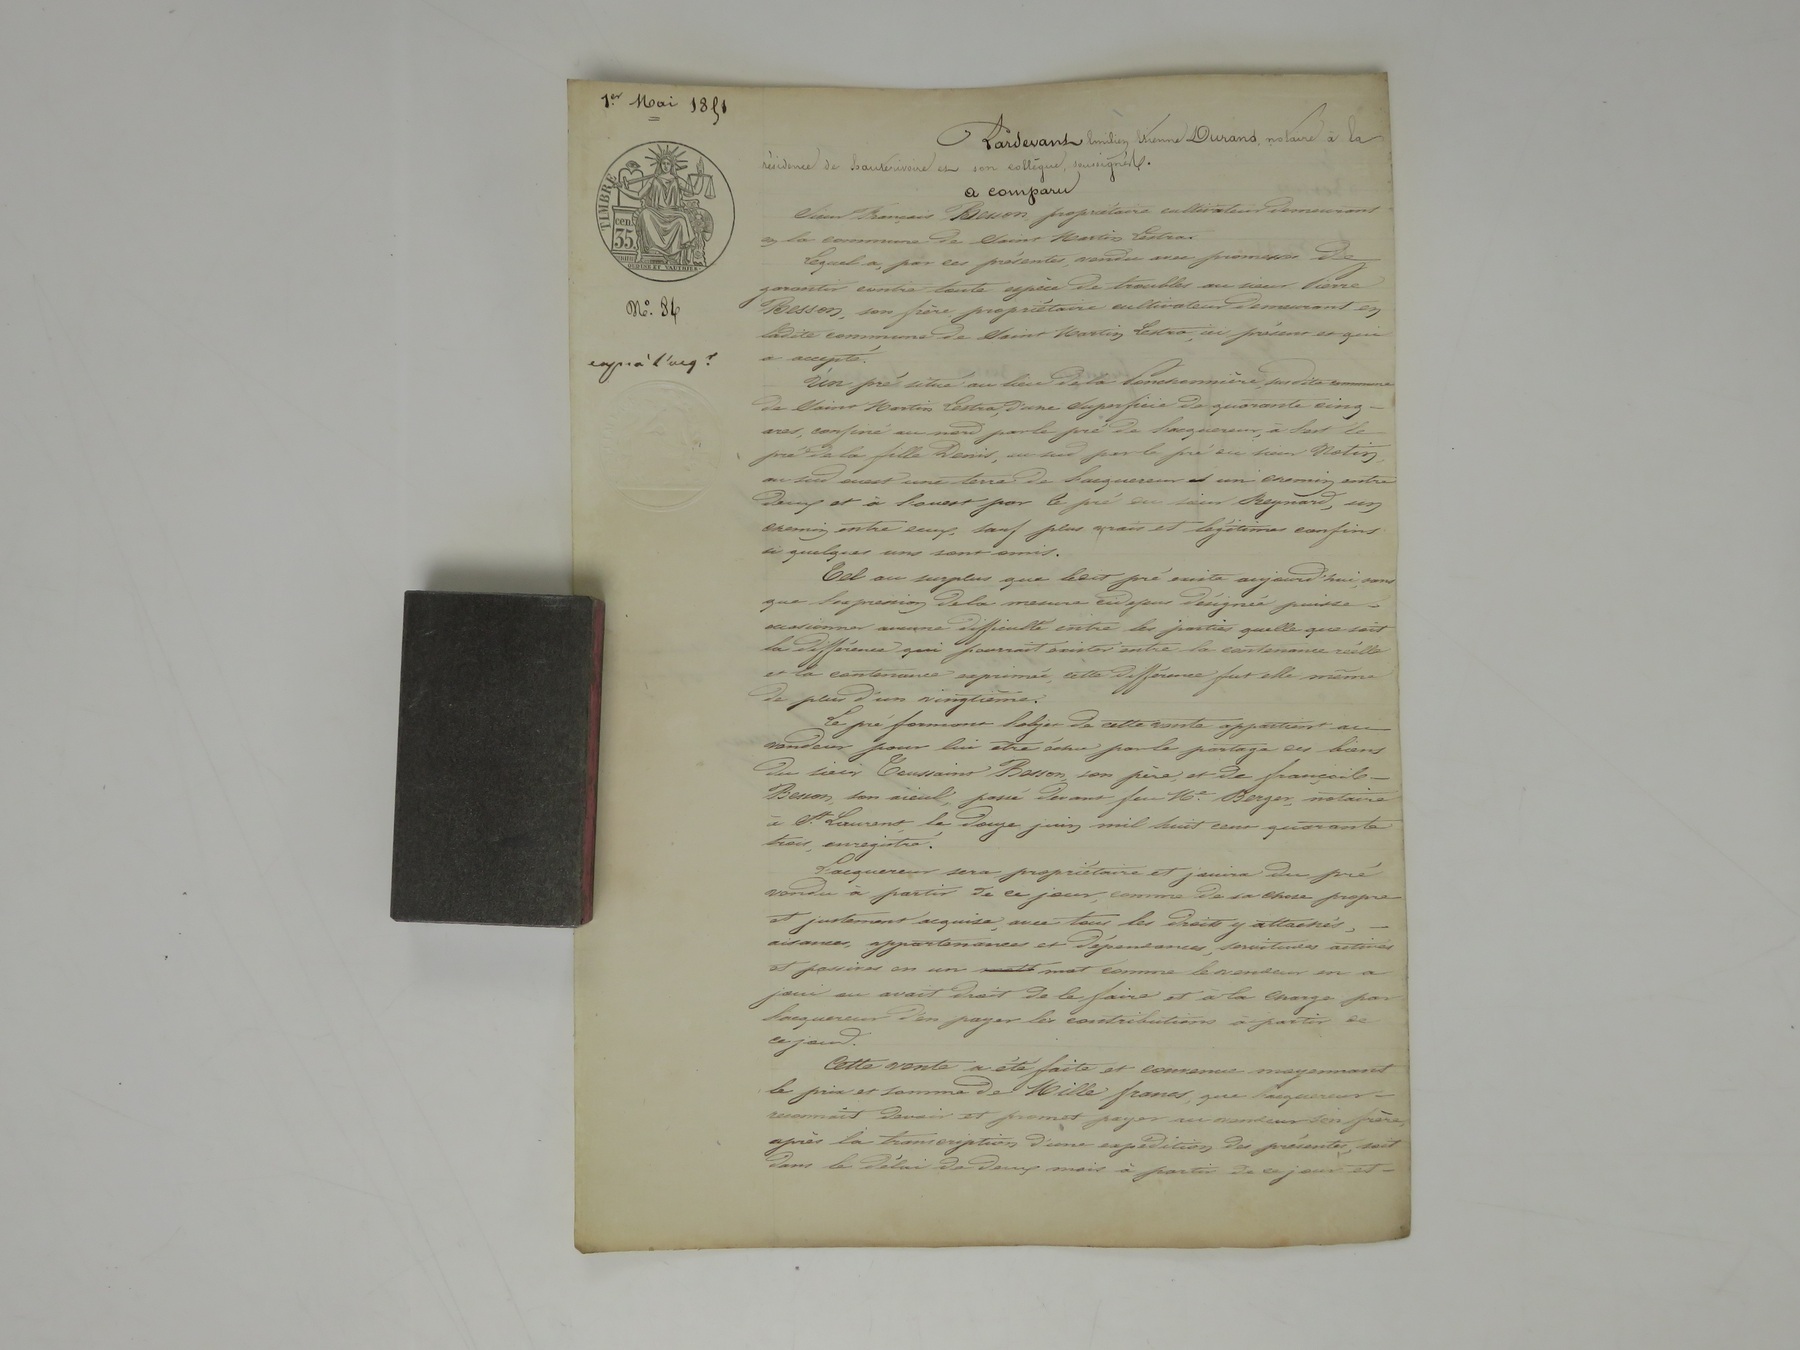 1er Mai 1851
TIMBRE
cen.
35.
OUDINE ET VAUTHIER
No. 84
exp. à l'acq.r
Pardevant Emilien Etienne Durand, notaire à la
résidence de hauterivoire et son collègue, soussignés.
a comparu
Sieur François Besson, propriétaire cultivateur demeurant
en la commune de Saint Martin Lestra.
Lequel a, par ces présentes, vendu avec promesses de
garantir contre toute espèce de troubles au sieur Pierre
Besson, son frère propriétaire cultivateur demeurant en
ladite commune de Saint Martin Lestra, ici présent et qui
a accepté.
Un pré situé au lieu de la susdite commune
de Saint Martin Lestra, d'une superficie de quarante cinq
ares, confiné au nord par le pré de l'acquereur, à l'est le
pré de la fille Denis, au sud par le pré du sieur
au sud ouest une terre de l'acquereur et un chemin entre
deux et à l'ouest par le pré du sieur Reynard, un
chemin entre eux, sauf plus vrais et légitimes confins
si quelques uns sont omis.
Tel au surplus que ledit pré existe aujourd'hui, sans
que l'expression de la mesure cidessus désignée puisse
occasionner aucune difficulté entre les parties quelle que soit
la différence qui pourrait exister entre la contenance réelle
et la contenance exprimée, cette différence fut elle même
de plus d'un vingtième.
Le pré formant l'objet de cette vente appartient au
vendeur pour lui être échu par le partage des biens
du sieur Toussaint Besson, son père et de François
Besson, son aïeul, passé devant feu Me Berger, notaire
à St Laurent le douze juin mil huit cent quarante
trois, enregistré.
L'acquereur sera propriétaire et jouira du pré
vendu à partir de ce jour, comme de sa chose propre
et justement acquise, avec tous les droits y attachés,
aisances, appartenances et dépendances, servitudes actives
et passives en un mot comme le vendeur en a
joui ou avait droit de le faire et à la charge par
l'acquereur d'en payer les contributions à partir de
ce jour.
Cette vente a été faite et convenue moyennant
le prix et somme de Mille francs, que l'acquereur
reconnaît devoir et promet payer au vendeur son frère,
après la transcription d'une expédition des présentes, soit
dans le délai de deux mois à partir de ce jour et